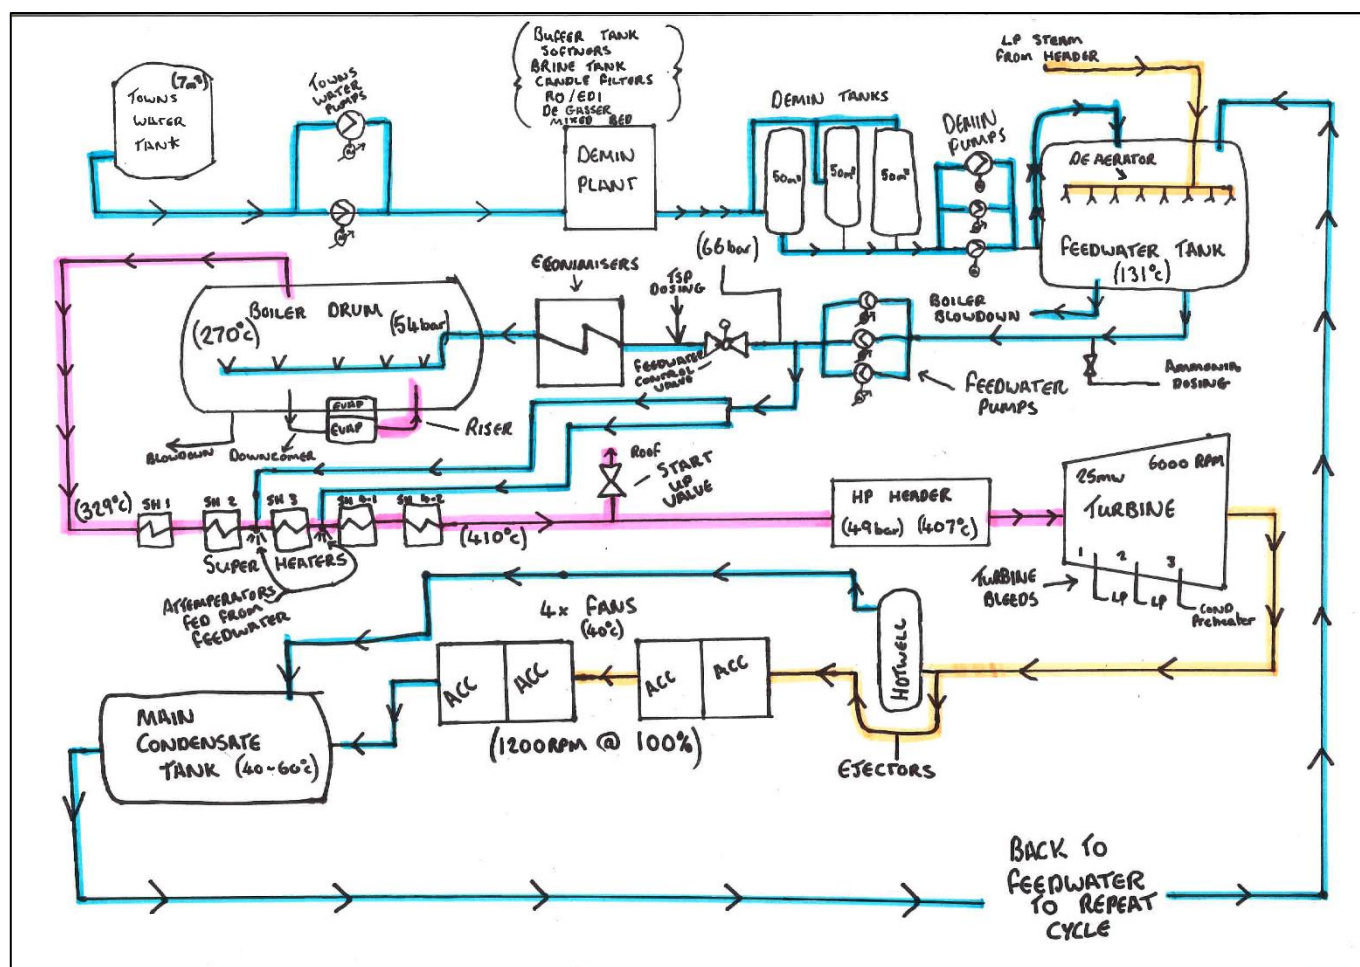 (7m³)
TOWNS
WATER
TANK
TOWNS
WATER
PUMPS
BUFFER TANK
SOFTNERS
BRINE TANK
CANDLE FILTERS
RO/EDI
DE GASSER
MIXED BED
DEMIN
PLANT
DEMIN TANKS
50m³
50m³
50m³
DEMIN
PUMPS
LP STEAM
FROM HEADER
DE AERATOR
FEEDWATER TANK
(131°C)
BOILER DRUM
(270°C)
(54bar)
EVAP
EVAP
RISER
BLOWDOWN
DOWNCOMER
ECONIMISERS
TSP
DOSING
(66bar)
FEEDWATER
CONTROL
VALVE
BOILER
BLOWDOWN
FEEDWATER
PUMPS
AMMONIA
DOSING
(329°C)
SH 1
SH 2
SH 3
SH 4-1
SH 4-2
(410°C)
SUPER HEATERS
ATTEMPERATORS
FED FROM
FEEDWATER
ROOF
START
UP
VALVE
HP HEADER
(49bar) (407°C)
6000 RPM
25MW
TURBINE
1 2 3
TURBINE
BLEEDS
LP
LP
COND
Preheater
4x FANS
(40°C)
ACC
ACC
ACC
ACC
(1200RPM @ 100%)
HOTWELL
EJECTORS
MAIN
CONDENSATE
TANK (40-60°C)
BACK TO
FEEDWATER
TO REPEAT
CYCLE